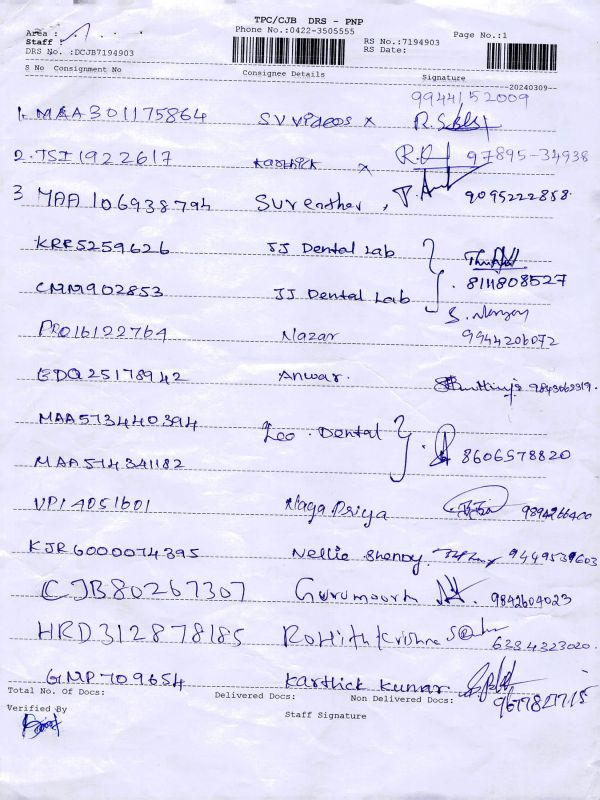 TPC/CJB DRS - PNP
Area :
Staff :
Phone No.:0422-3505555
Page No.:1
RS No.:7194903
DRS No. :DCJB7194903
RS Date:
S No Consignment No Consignee Details Signature
--20240309--
9944152009
1. MAA301175864 SV Videos x
2. TSI1922617 Karthick x 97895-34938
3 MAA106938794 Surenther, 9095222858.
KRR5259626 JJ Dental Lab
CMM902853 JJ Dental Lab 8111808527
PRO16122764 Nazar 9944206072
EDQ25178942 Anwar. 9843062319.
MAA573440394 Leo. Dental
MAA574341182 8606578820
VPI4051601 Naga Priya 9894266400
KJR6000074395 Nellie Shenoy 9449539603
CJB80267307 Gurumoorth 9842604023
HRD312878185 Rohith Krishna 6334323020.
GMP709654 Karthick Kumar
Total No. Of Docs: Delivered Docs: Non Delivered Docs:
Verified By
Staff Signature